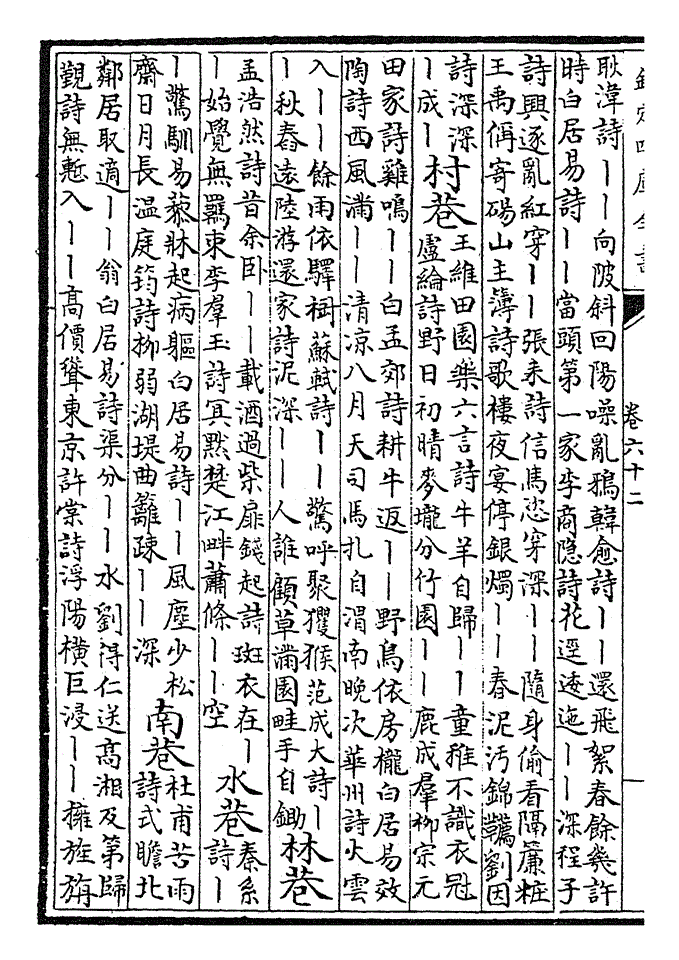 欽定四庫全書
卷六十二
耿湋詩丨丨向陂斜回陽噪亂鴉韓愈詩丨丨還飛絮春餘幾許
時白居易詩丨丨當頭第一家李商隠詩花逕逶迤丨丨深程子
詩興逐亂紅穿丨丨張耒詩信馬恣穿深丨丨隨身偷看隔簾粧
王禹偁寄碭山主簿詩歌樓夜宴停銀燭丨丨春泥汚錦韉劉因
詩深深
丨成丨
村巷
王維田園樂六言詩牛羊自歸丨丨童稚不識衣冠
盧綸詩野日初晴麥壠分竹園丨丨鹿成羣栁宗元
田家詩雞鳴丨丨白孟郊詩耕牛返丨丨野鳥依房櫳白居易效
陶詩西風滿丨丨清凉八月天司馬扎自渭南晚次華州詩火雲
入丨丨餘雨依驛桐蘇軾詩丨丨驚呼聚玃猴范成大詩丨
丨秋舂遠陸游還家詩泥深丨丨人誰顧草滿園畦手自鋤
林巷
孟浩然詩昔余卧丨丨載酒過柴扉錢起詩斑衣在丨
丨始覺無羈束李羣玉詩冥黙楚江畔蕭條丨丨空
水巷
秦系
詩丨
丨驚馴易藜牀起病軀白居易詩丨丨風塵少松
齋日月長温庭筠詩栁弱湖堤曲籬疎丨丨深
南巷
杜甫苦雨
詩式瞻北
鄰居取適丨丨翁白居易詩渠分丨丨水劉得仁送高湘及第歸
覲詩無慙入丨丨高價聳東京許棠詩浮陽橫巨浸丨丨擁旌旃